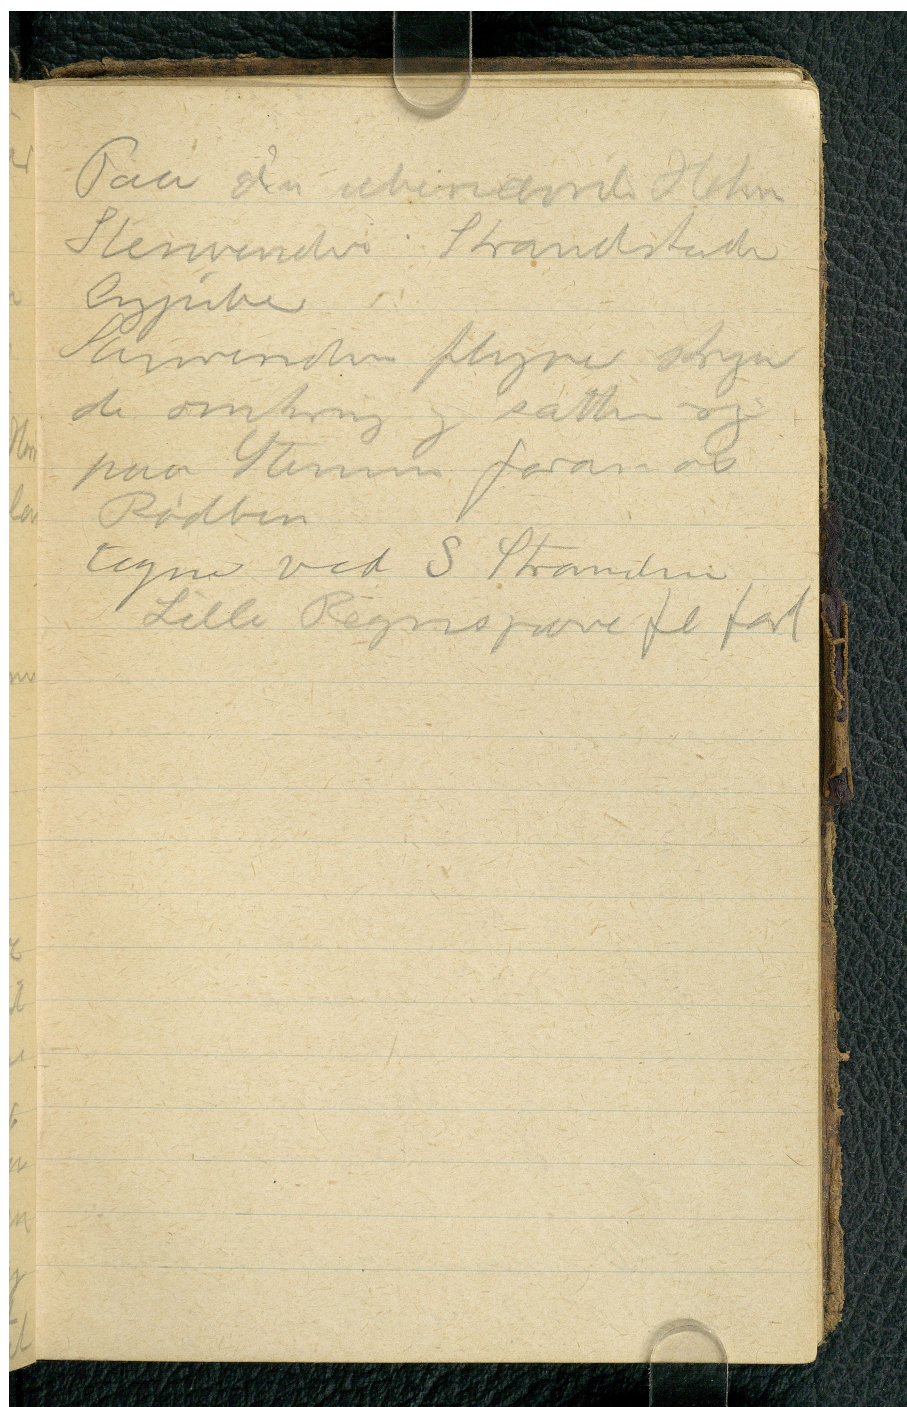 Paa den ubenævnte Holm
Stenvender Strandskade
Stenvenderen flyver skrigen
de omkring og sætter sig
paa Stenene foran os
Rødben
tegne ved S Stranden
Lille Regnspove fl forb